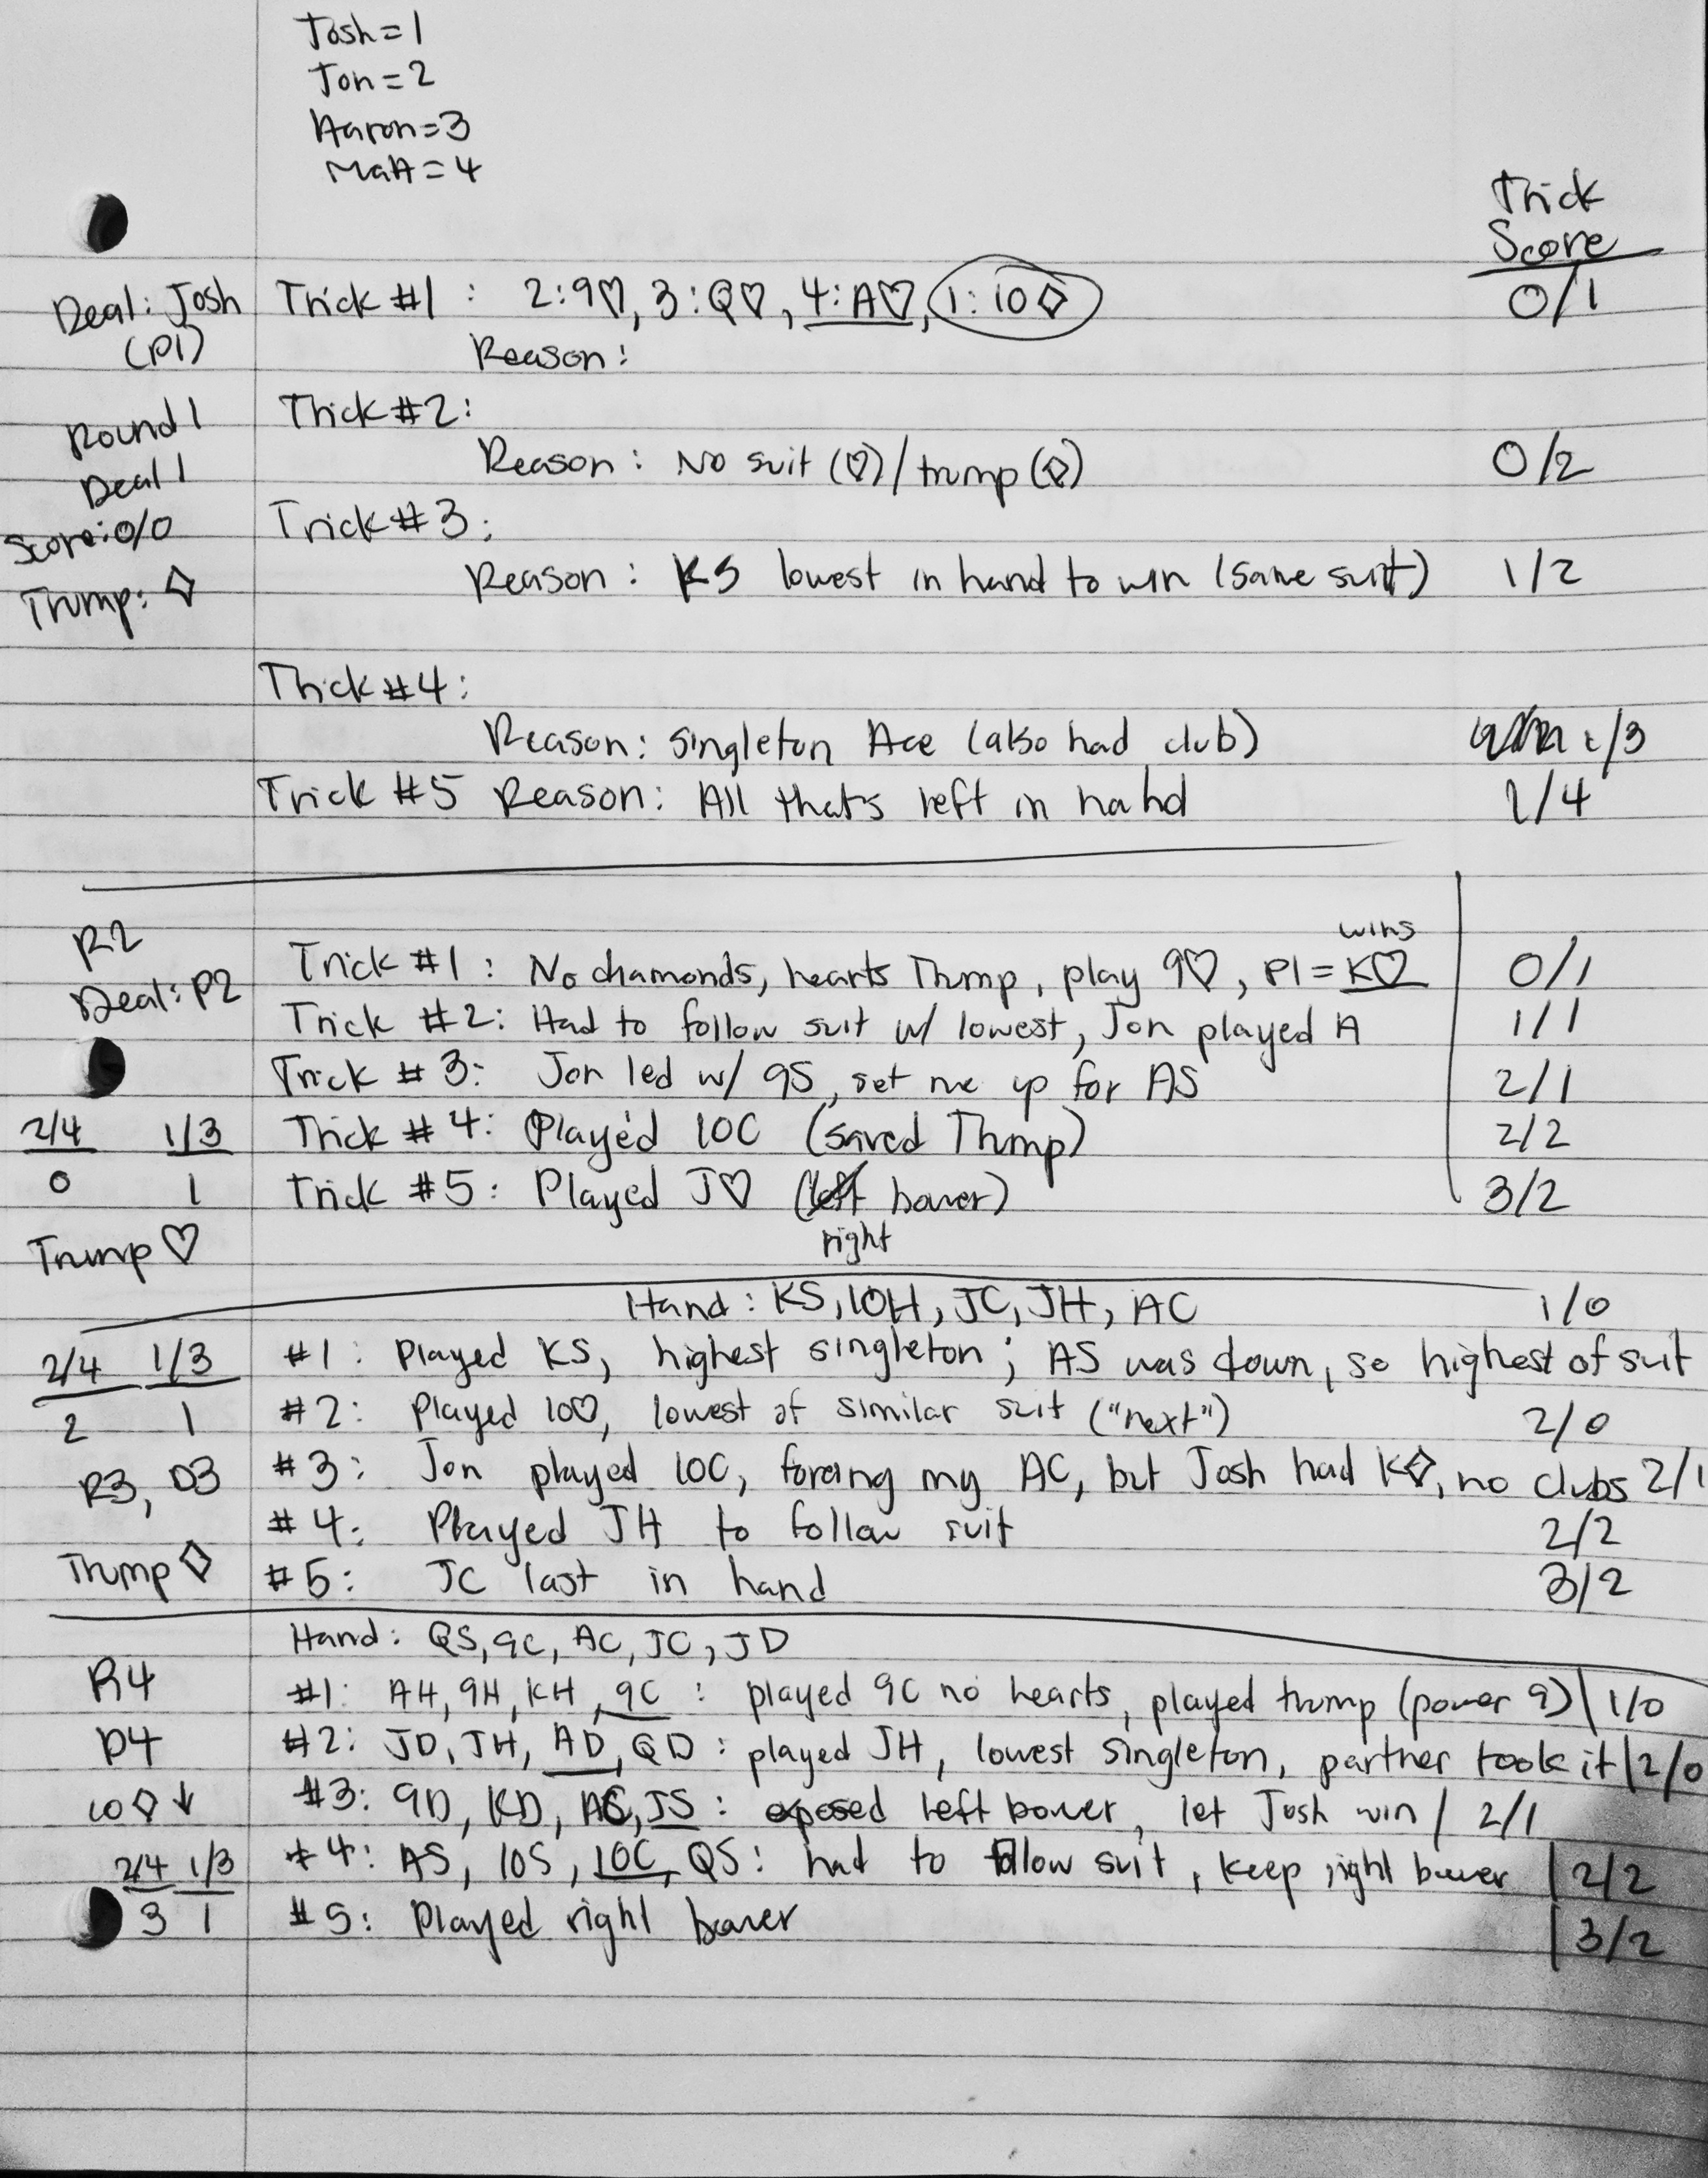 Josh = 1
Jon = 2
Aaron = 3
Matt = 4
Trick
Score
Deal: Josh
(P1)
Trick #1 : 2:9♡, 3:Q♡, 4:A♡, 1:10◇ 0/1
Reason:
Round 1
Deal 1
Score: 0/0
Trump: ◇
Trick #2:
Reason: No suit (♡)/trump (◇) 0/2
Trick #3:
Reason: KS lowest in hand to win (same suit) 1/2
Trick #4:
Reason: singleton Ace (also had club) 1/3
Trick #5 Reason: All that's left in hahd 1/4
R2
Deal: P2
Trick #1: No diamonds, hearts Trump, play 9♡, P1 = K♡ wins 0/1
Trick #2: Had to follow suit w/ lowest, Jon played A 1/1
Trick #3: Jon led w/ 9S, set me up for AS 2/1
2/4 1/3
0 1
Trump ♡
Trick #4: Played 10C (saved Trump) 2/2
Trick #5: Played J♡ (left bower) 3/2
right
Hand: KS, 10H, JC, JH, AC 1/0
2/4 1/3
2 1
R3, D3
Trump ◇
#1: Played KS, highest singleton; AS was down, so highest of suit
#2: Played 10♡, lowest of similar suit ("next") 2/0
#3: Jon played 10C, forcing my AC, but Josh had K◇, no clubs 2/1
#4: Played JH to follow suit 2/2
#5: JC last in hand 3/2
Hand: QS, 9C, AC, JC, JD
R4
D4
10◇↓
2/4 1/3
3 1
#1: AH, 9H, KH, 9C: played 9C no hearts, played trump (power 9) | 1/0
#2: JD, JH, AD, QD: played JH, lowest singleton, partner took it | 2/0
#3: 9D, KD, AC, JS: exposed left bower, let Josh win / 2/1
#4: AS, 10S, 10C, QS: had to follow suit, keep right bower | 2/2
#5: Played right bower | 3/2